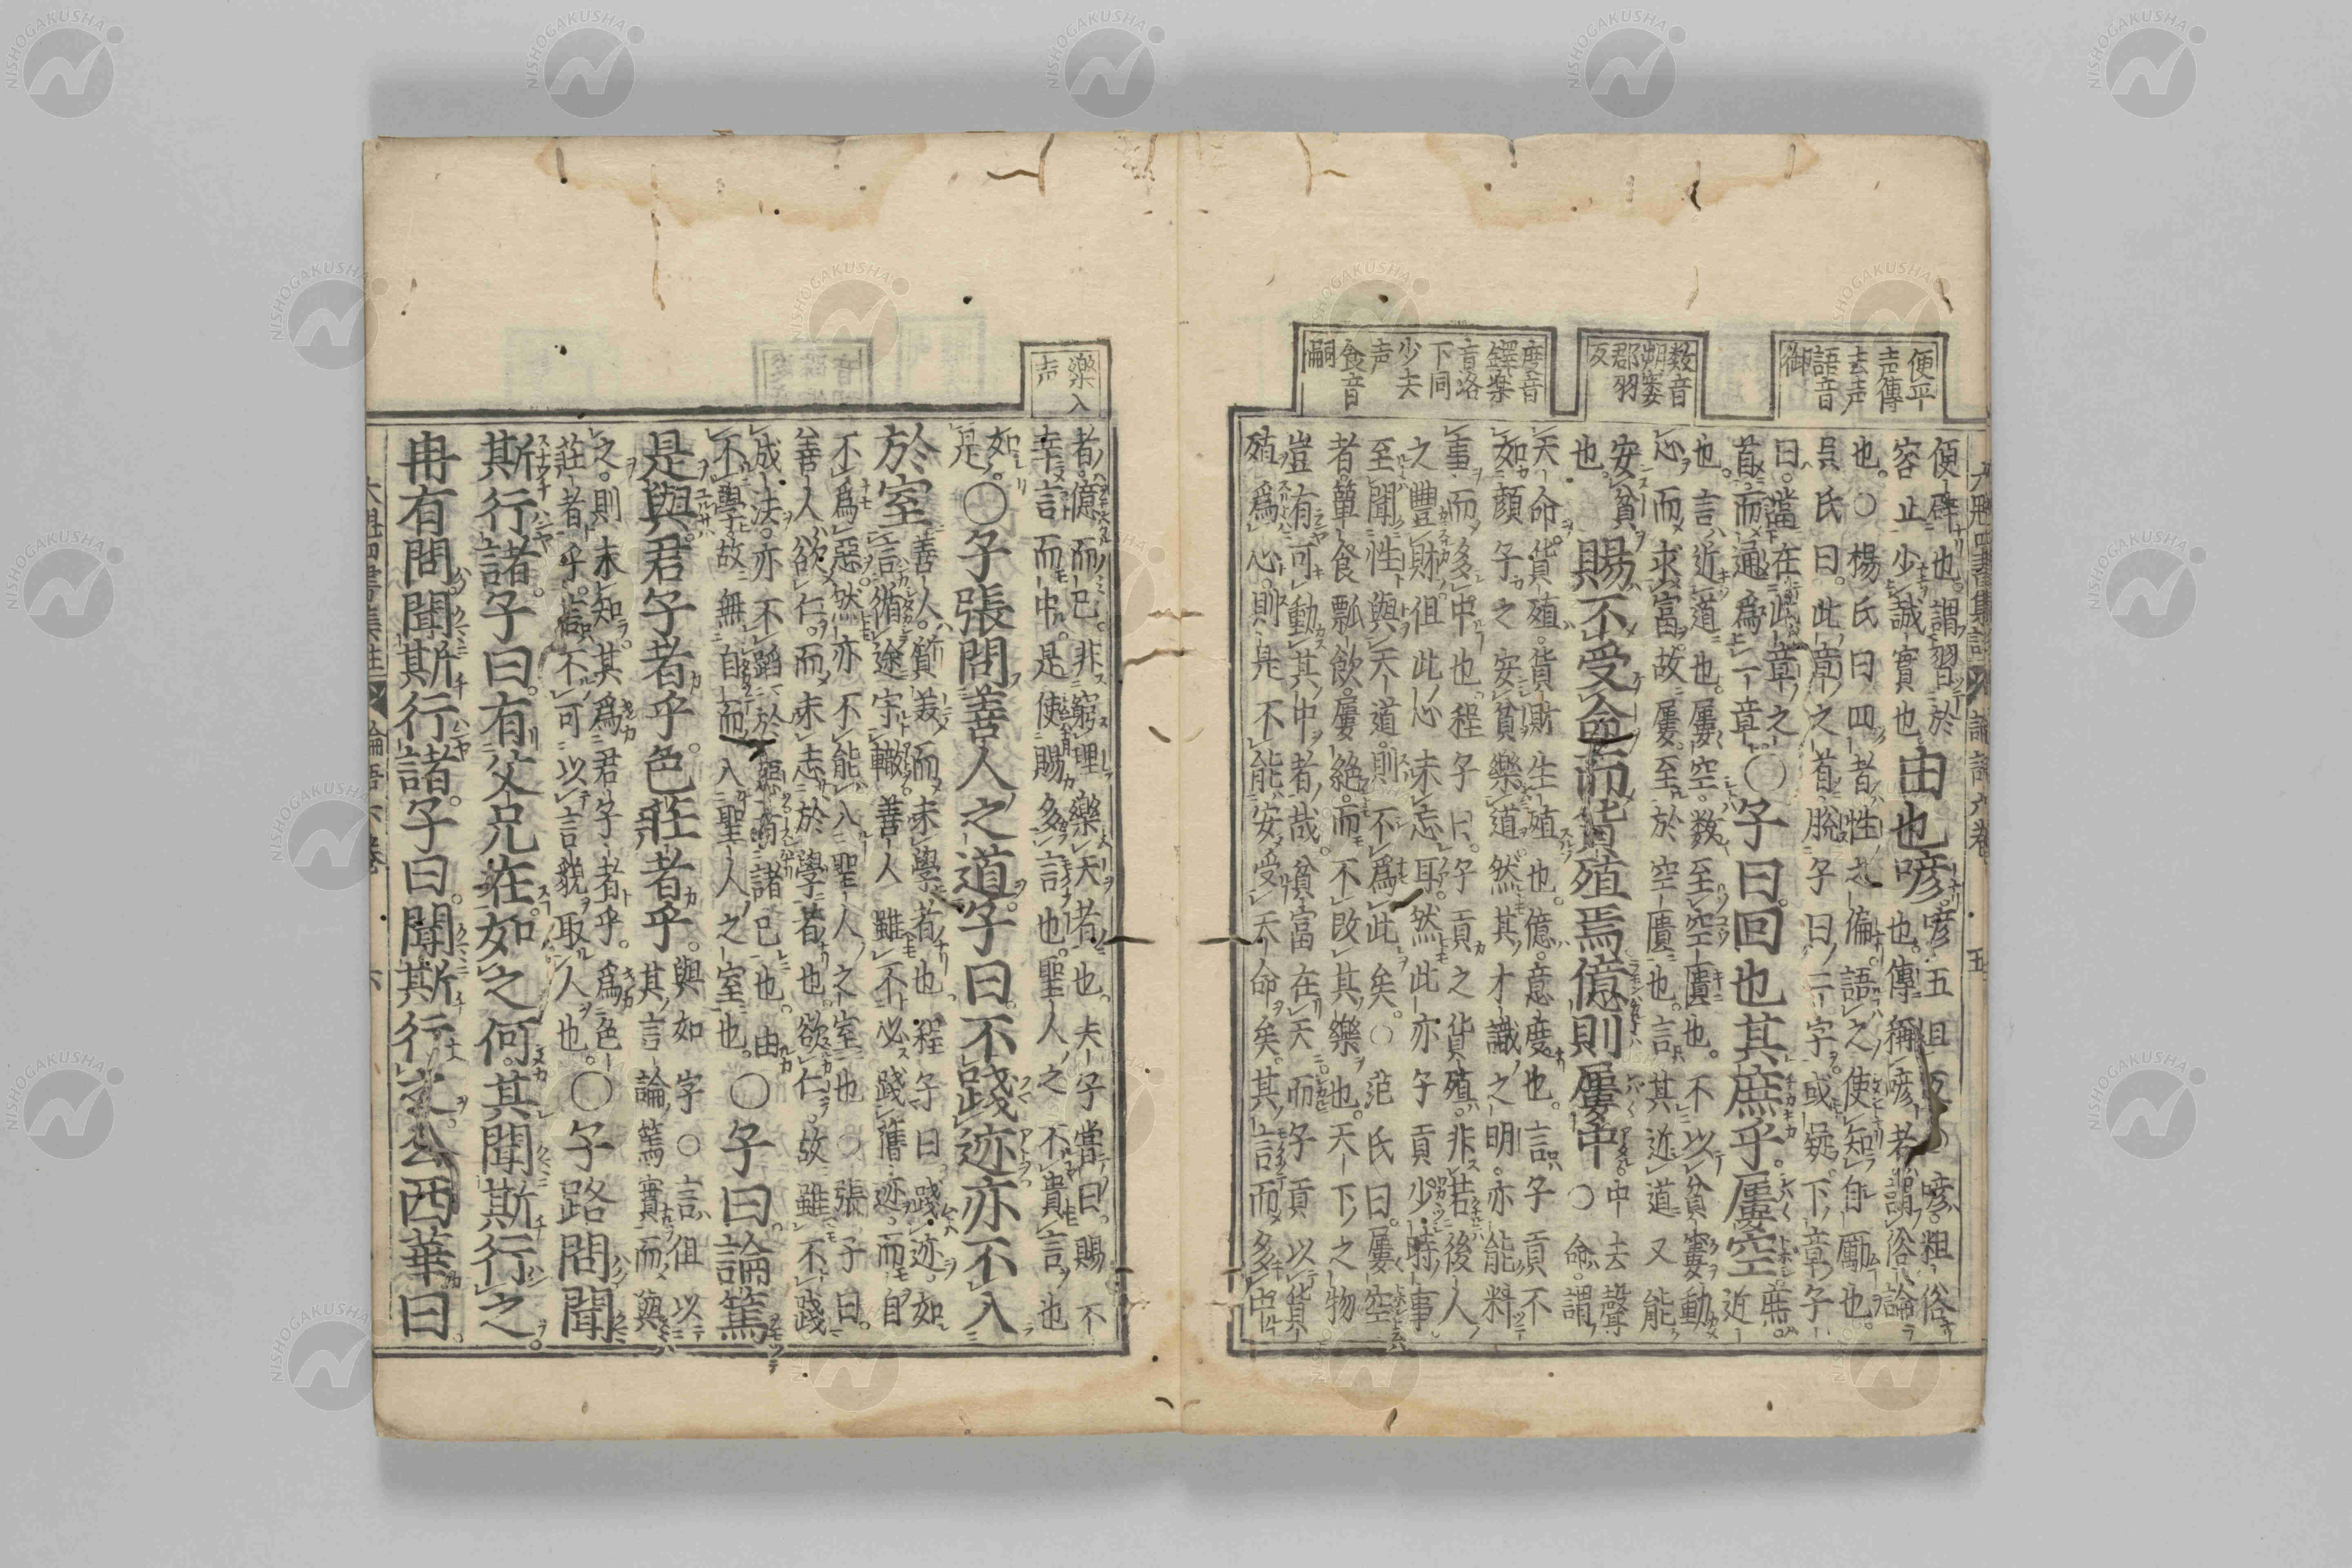 便平
声傳
去声
語音
御
数音
朔婁
郡羽
反
度音
鐸楽
音洛
下同
少夫
声
食音
嗣
便辟也。謂習於
容止少誠實也
由也喭。
喭五旦反○喭。粗俗
也。傳稱喭者。謂俗論
也。○楊氏曰四者性之偏。語之使知自勵也。
呉氏曰。此章之首脱子曰二字。或疑。下章子
曰。當在此章之
首。而通為一章。
○子曰。回也其庶乎。屢空
庶。近
也。言近道也。屢空。数至空匱也。不以貧窶動
心而求富。故屢至於空匱也。言其近道又能
安貧
也。
賜不受命而貨殖焉億則屢中
中去聲
○命。謂
天命。貨殖。貨財生殖也。億。意度也。言子貢不
如顔子之安貧樂道。然其才識之明。亦能料
事而多中也。程子曰。子貢之貨殖。非若後人
之豐財。但此心未忘耳。然此亦子貢少時事
至聞性與天道。則不為此矣。○范氏曰。屢空
者。簞食瓢飲。屢絶。而不改其樂也。天下之物
豈有可動其中者哉。貧富在天。而子貢以貨
殖為心。則是不能安受天命矣。其言而多中
大魁四書集註
論語六巻
五
樂入
声
者。億而已。非窮理樂天者也。夫子嘗曰。賜不
幸言而中。是使賜多言也。聖人之不貴言也
如
是。
○子張問善人之道。子曰。不踐迹亦不入
於室
善人。質美而未學者也。程子曰。踐迹。如
言循途守轍。善人雖不必踐舊迹。而自
不為惡。然亦不能入聖人之室也○張子曰。
善人欲仁。而未志於學者也。欲仁。故雖不踐
成法。亦不蹈於惡。有諸己也。由
不學。故無自而入聖人之室也。
○子曰。論篤
是與。君子者乎。色莊者乎。
與如字○言但以
其言論篤實而與
之。則未知其為君子者乎。為色
莊者乎。言不可以言貌取人也。
○子路問聞
斯行諸。子曰。有父兄在。如之何。其聞斯行之。
冉有問聞斯行諸。子曰。聞斯行之。公西華曰。
大魁四書集註
論語六巻
六